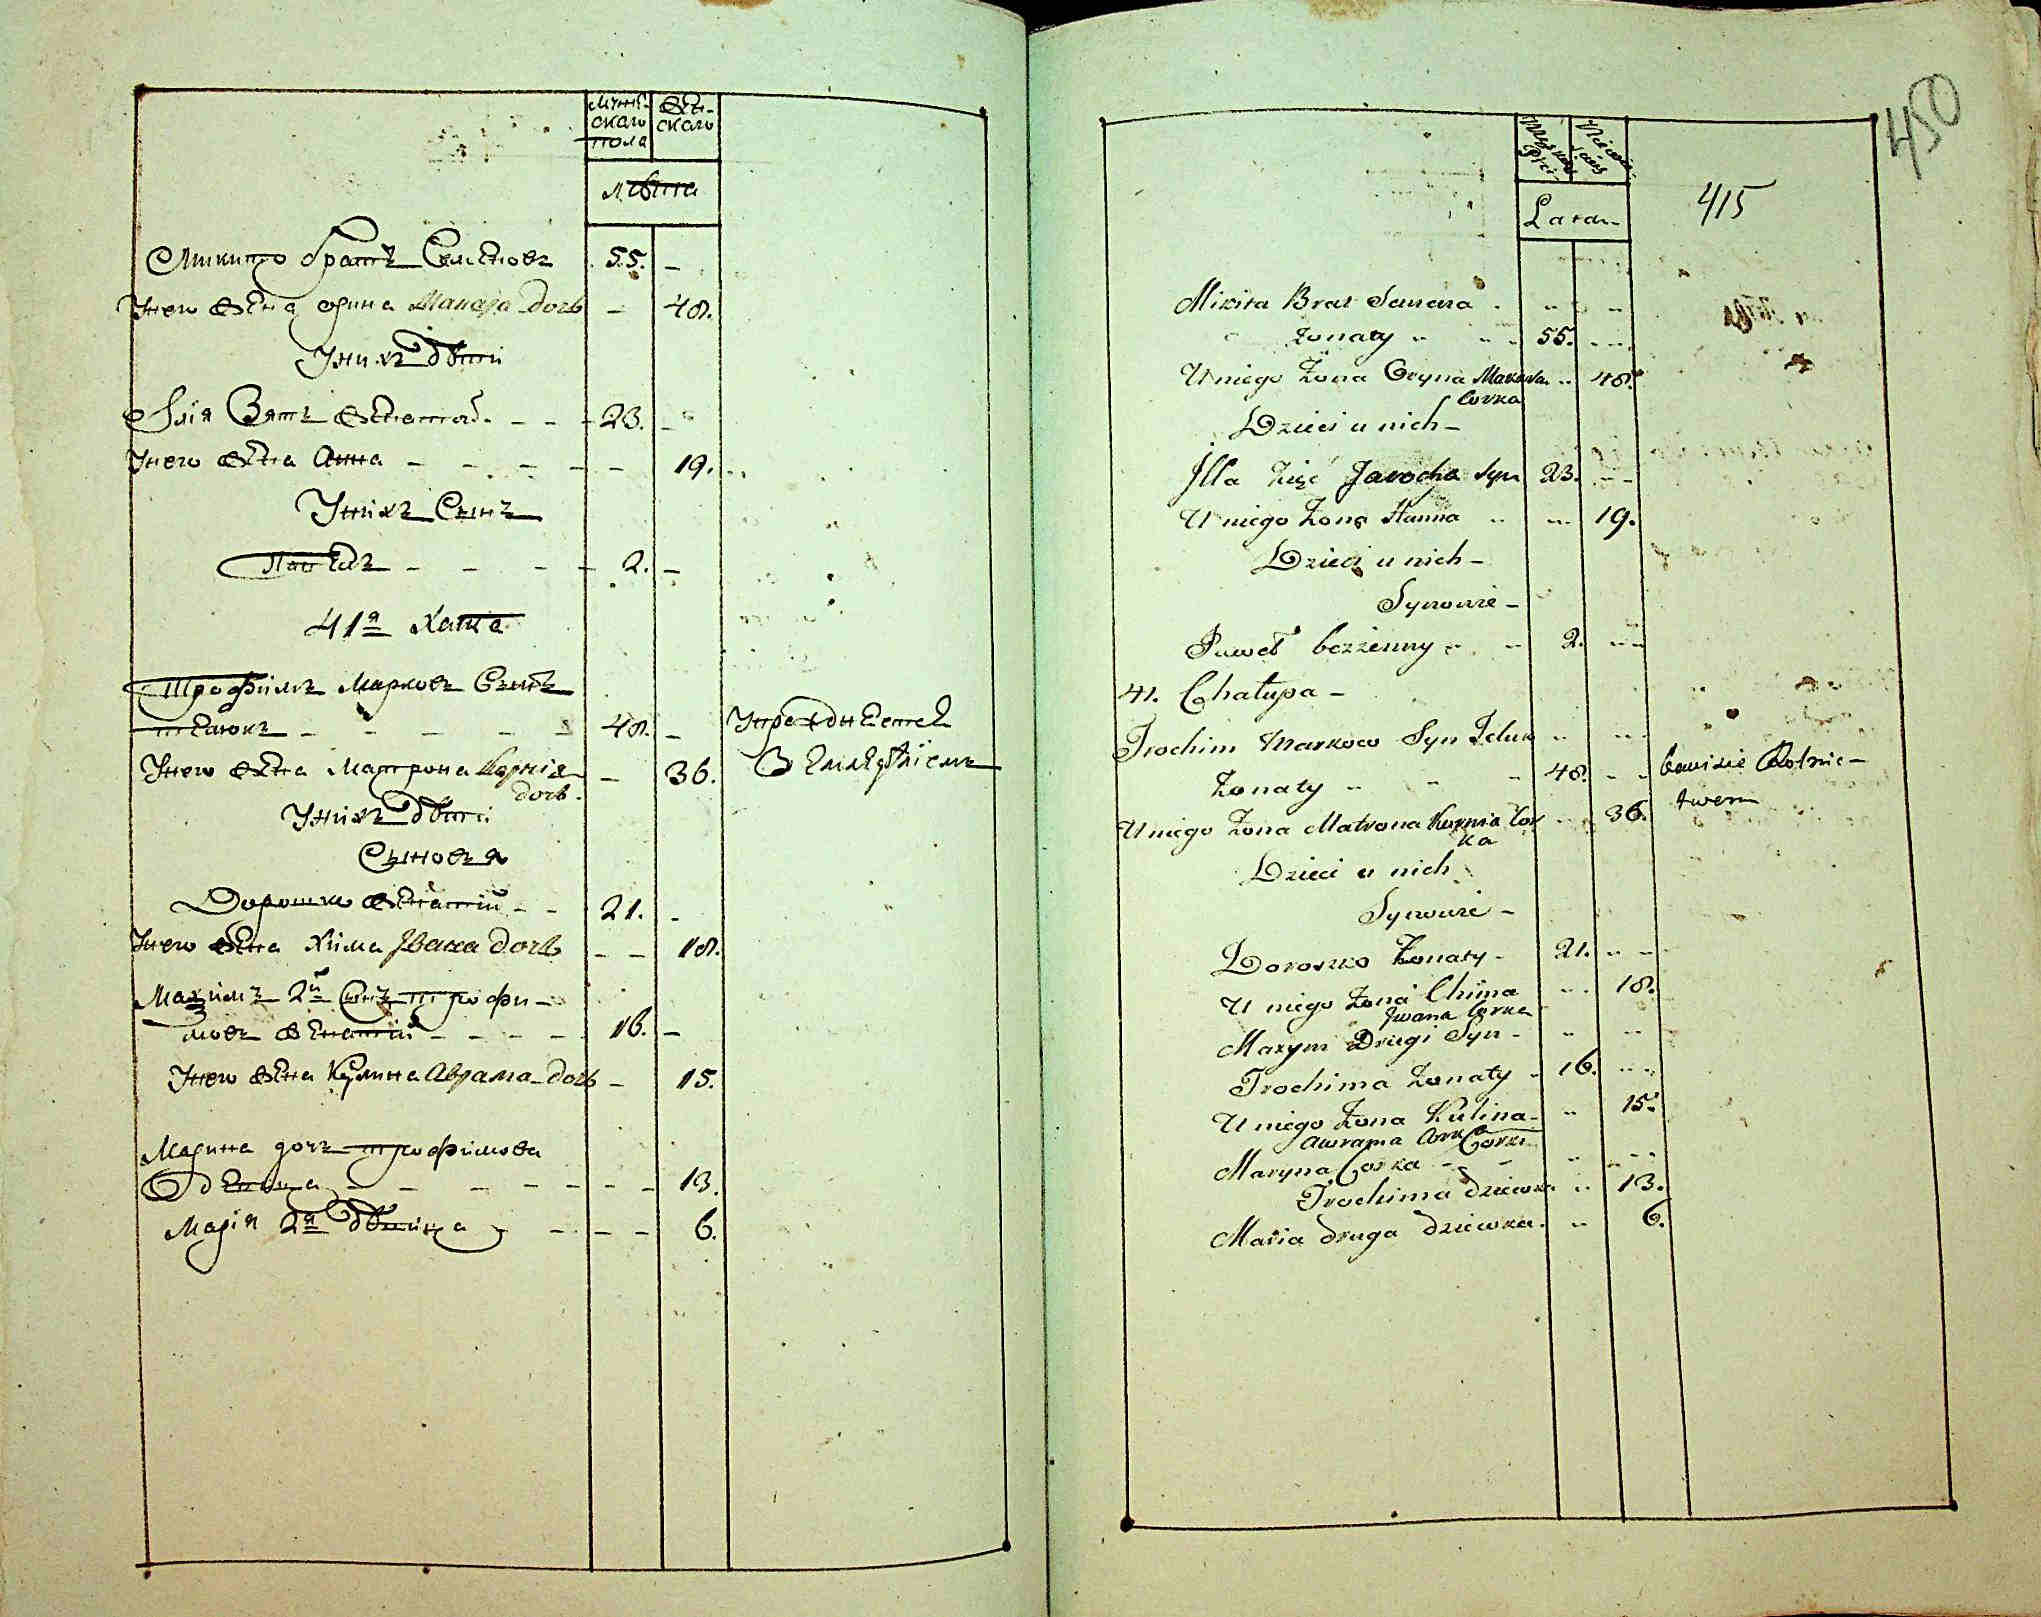 Мужескаго пола
Женскаго
Лѣта
Микито братъ Семеновъ 55. –
У него жена Орина Макара дочь – 48.
У нихъ дѣти
Илія Зять женатый – – 23. –
У него жена Анна – – – – 19.
У нихъ Сынъ
Павелъ – – – 2. –
41я Хата
Трофимъ Марковъ Сынъ
– – – – 48. –
У него жена Матрона Корнія – 36.
дочь
У нихъ дѣти
Сыновья
Дорошко женатый – – 21. –
У него жена Хима Ивана дочь – – 18.
Махимъ 2й Сынъ Трофи–
мовъ женатый – – – – 16. –
У него жена Кулина Аврама дочь – 15.
Марина дочь Трофимова
Дѣвица – – – – – – 13.
Марія 2я дѣвица – – – – 6.
земледѣліемъ
450
415
Męskiey Płci
Lata
Mikita Brat Semena
żonaty 55.
U niego Żona Oryna Makara 48.
Corka
Dzieci u nich –
Illa Zięć Jarocha Syn 23.
U niego Żona Hanna 19.
Dzieci u nich –
Synowie –
Paweł bezżenny 2.
41. Chałupa –
Trochim Markow Syn
Żonaty 48.
bawi się Rolnic–
twem
U niego Żona Matrona Kornia Cor 36.
ka
Dzieci u nich
Synowie –
Doroszko Żonaty – 21.
U niego Żona Chima 18.
Jwana Corka
Maxym Drugi Syn –
Trochima Żonaty 16.
U niego Żona Kulina 15.
Awrama Corka
Maryna Corka
Trochima dziewka 13.
Maria druga dziewka 6.